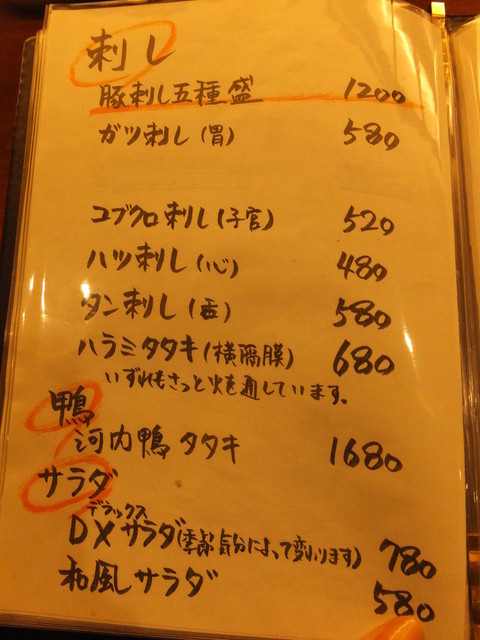 刺し
豚刺し五種盛 1200
ガツ刺し(胃) 580
コブクロ刺し(子宮) 520
ハツ刺し(心) 480
タン刺し(舌) 580
ハラミタタキ(横隔膜) 680
いずれもさっと火を通しています。
鴨
河内鴨タタキ 1680
サラダ
デラックス
DXサラダ(季節気分によって変わります) 780
和風サラダ 580